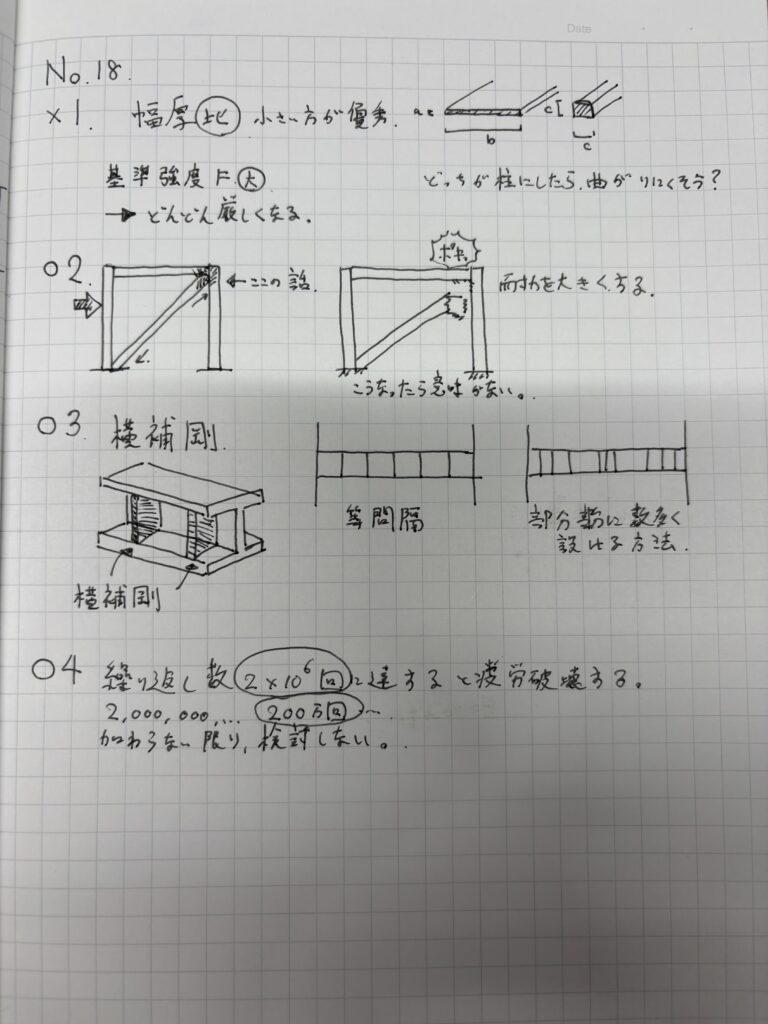 Date
No.18.
×1. 幅厚比 小さい方が優秀.
a
b
c
c
基準強度 F.大
→ どんどん厳しくなる。
どっちが柱にしたら、曲がりにくそう?
○2.
←ここの話.
ボキッ
耐力を大きくする.
こうなったら意味がない。
○3. 横補剛.
横補剛
等間隔
部分的に数多く
設ける方法.
○4 繰り返し数 2×10⁶回に達すると疲労破壊する。
2,000,000,... 200万回...
加わらない限り、検討しない。